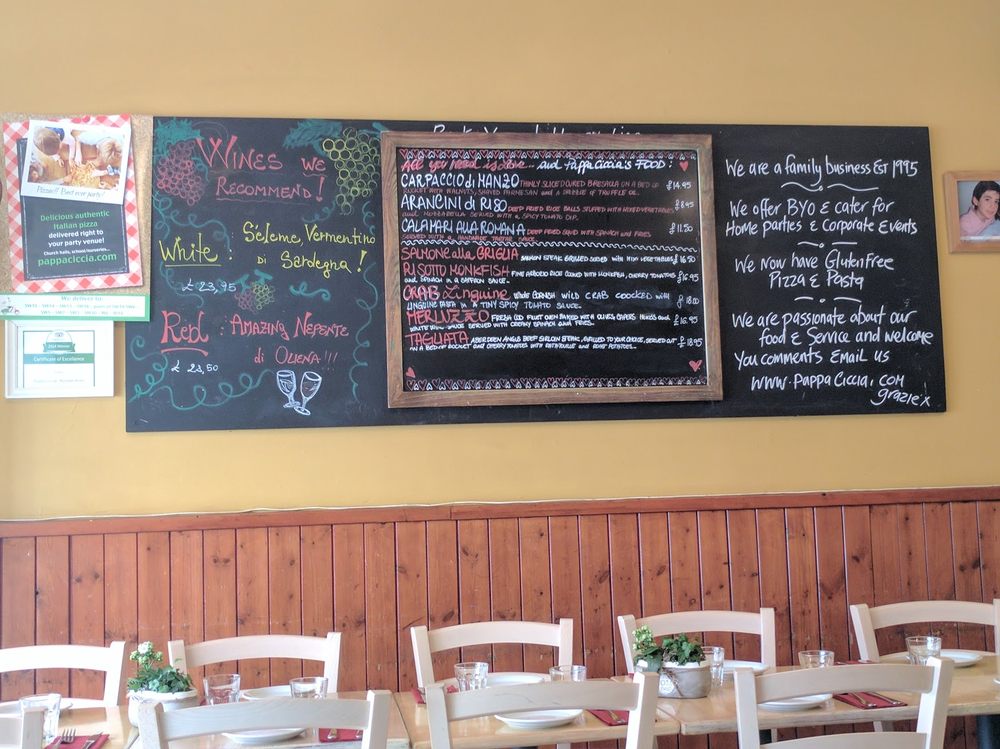 Pizza!! Best ever party!
Delicious authentic
Italian pizza
delivered right to
your party venue!
pappaciccia.com
We deliver to:
Certificate of Excellence
WINES WE
RECOMMEND!
White : Séleme Vermentino
di Sardegna!
£ 23,95
Red : AMAZING NEPENTE
di OLIENA!!!
£ 23,50
All you need is love... and PappaCiccia's FOOD!
CARPACCIO di MANZO THINLY SLICED CURED BRESAOLA ON A BED OF £14.95
ROCKET WITH WALNUTS, SHAVED PARMESAN and A DRIZZLE OF TRUFFLE OIL.
ARANCINI di RISO DEEP FRIED RICE BALLS STUFFED WITH MIXED VEGETABLES £8.95
and MOZZARELLA SERVED WITH A SPICY TOMATO DIP.
CALAMARI ALLA ROMANA DEEP FRIED SQUID WITH SPINACH and FRIES £11.50
SERVED WITH A HOMEMADE TARTAR SAUCE
SALMONE alla GRIGLIA SALMON STEAK GRILLED SERVED WITH MIXED VEGETABLES £16.50
RISOTTO MONKFISH FINE ARBORIO RICE COOKED WITH MONKFISH, CHERRY TOMATOES £16.95
and SPINACH IN A SAFFRON SAUCE.
CRAB Linguine WHITE CORNISH WILD CRAB COOCKED WITH £18.00
LINGUINE PASTA IN A TINY SPICY TOMATO SAUCE.
MERLUZZO FRESH COD FILLET OVEN BAKED WITH OLIVES, CAPERS, HERBS and £16.95
WHITE WINE SAUCE SERVED WITH CREAMY SPINACH and FRIES.
TAGLIATA ABERDEEN ANGUS BEEF SIRLOIN STEAK, GRILLED TO YOUR CHOICE, SERVED £18.95
ON A BED OF ROCKET AND CHERRY TOMATOES WITH RATATOUILLE and ROAST POTATOES...
We are a family business EST 1995
We offer BYO & cater for
Home parties & Corporate Events
We now have Gluten free
Pizza & Pasta
We are passionate about our
food & Service and welcome
You comments EMAIL US
WWW.PAPPA CICCIA.COM
grazie x